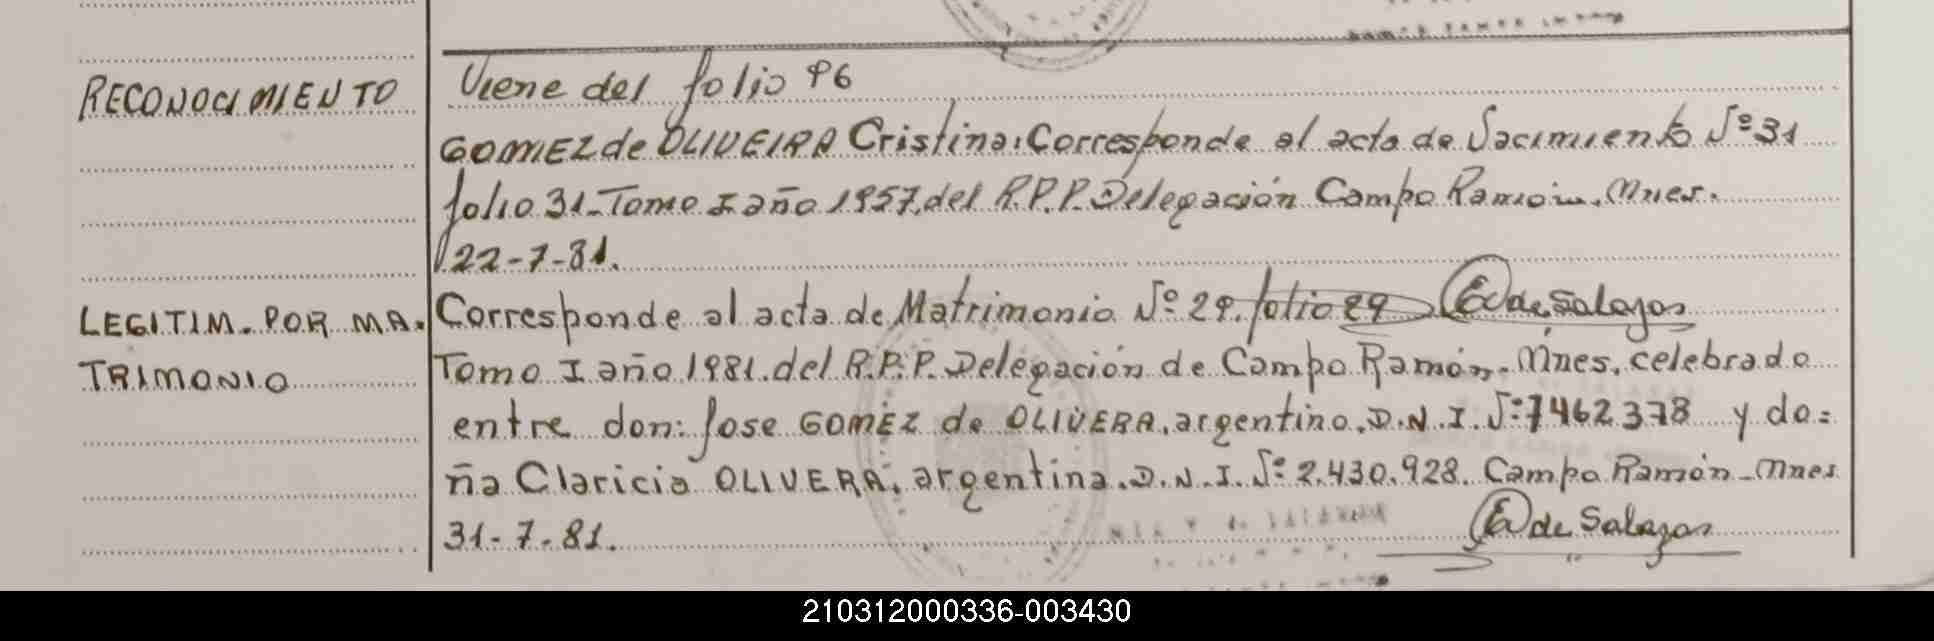 RECONOCIMIENTO
Viene del folio 96
GOMEZ de OLIVEIRA Cristina: Corresponde al acta de Nacimiento Nº 31
folio 31-Tomo I año 1957. del R.P.P. Delegación Campo Ramón. Mnes.
22-7-81.
LEGITIM. POR MA. Corresponde al acta de Matrimonio Nº 29. folio 29 de Salazar
TRIMONIO Tomo I año 1981. del R.P.P. Delegación de Campo Ramón-Mnes. celebrado
entre don: Jose GOMEZ de OLIVERA, argentino. D.N.I. Nº 7462378 y do=
ña Claricia OLIVERA, argentina. D.N.I. Nº 2.430.928. Campo Ramón-Mnes
31-7-81. de Salazar
210312000336-003430